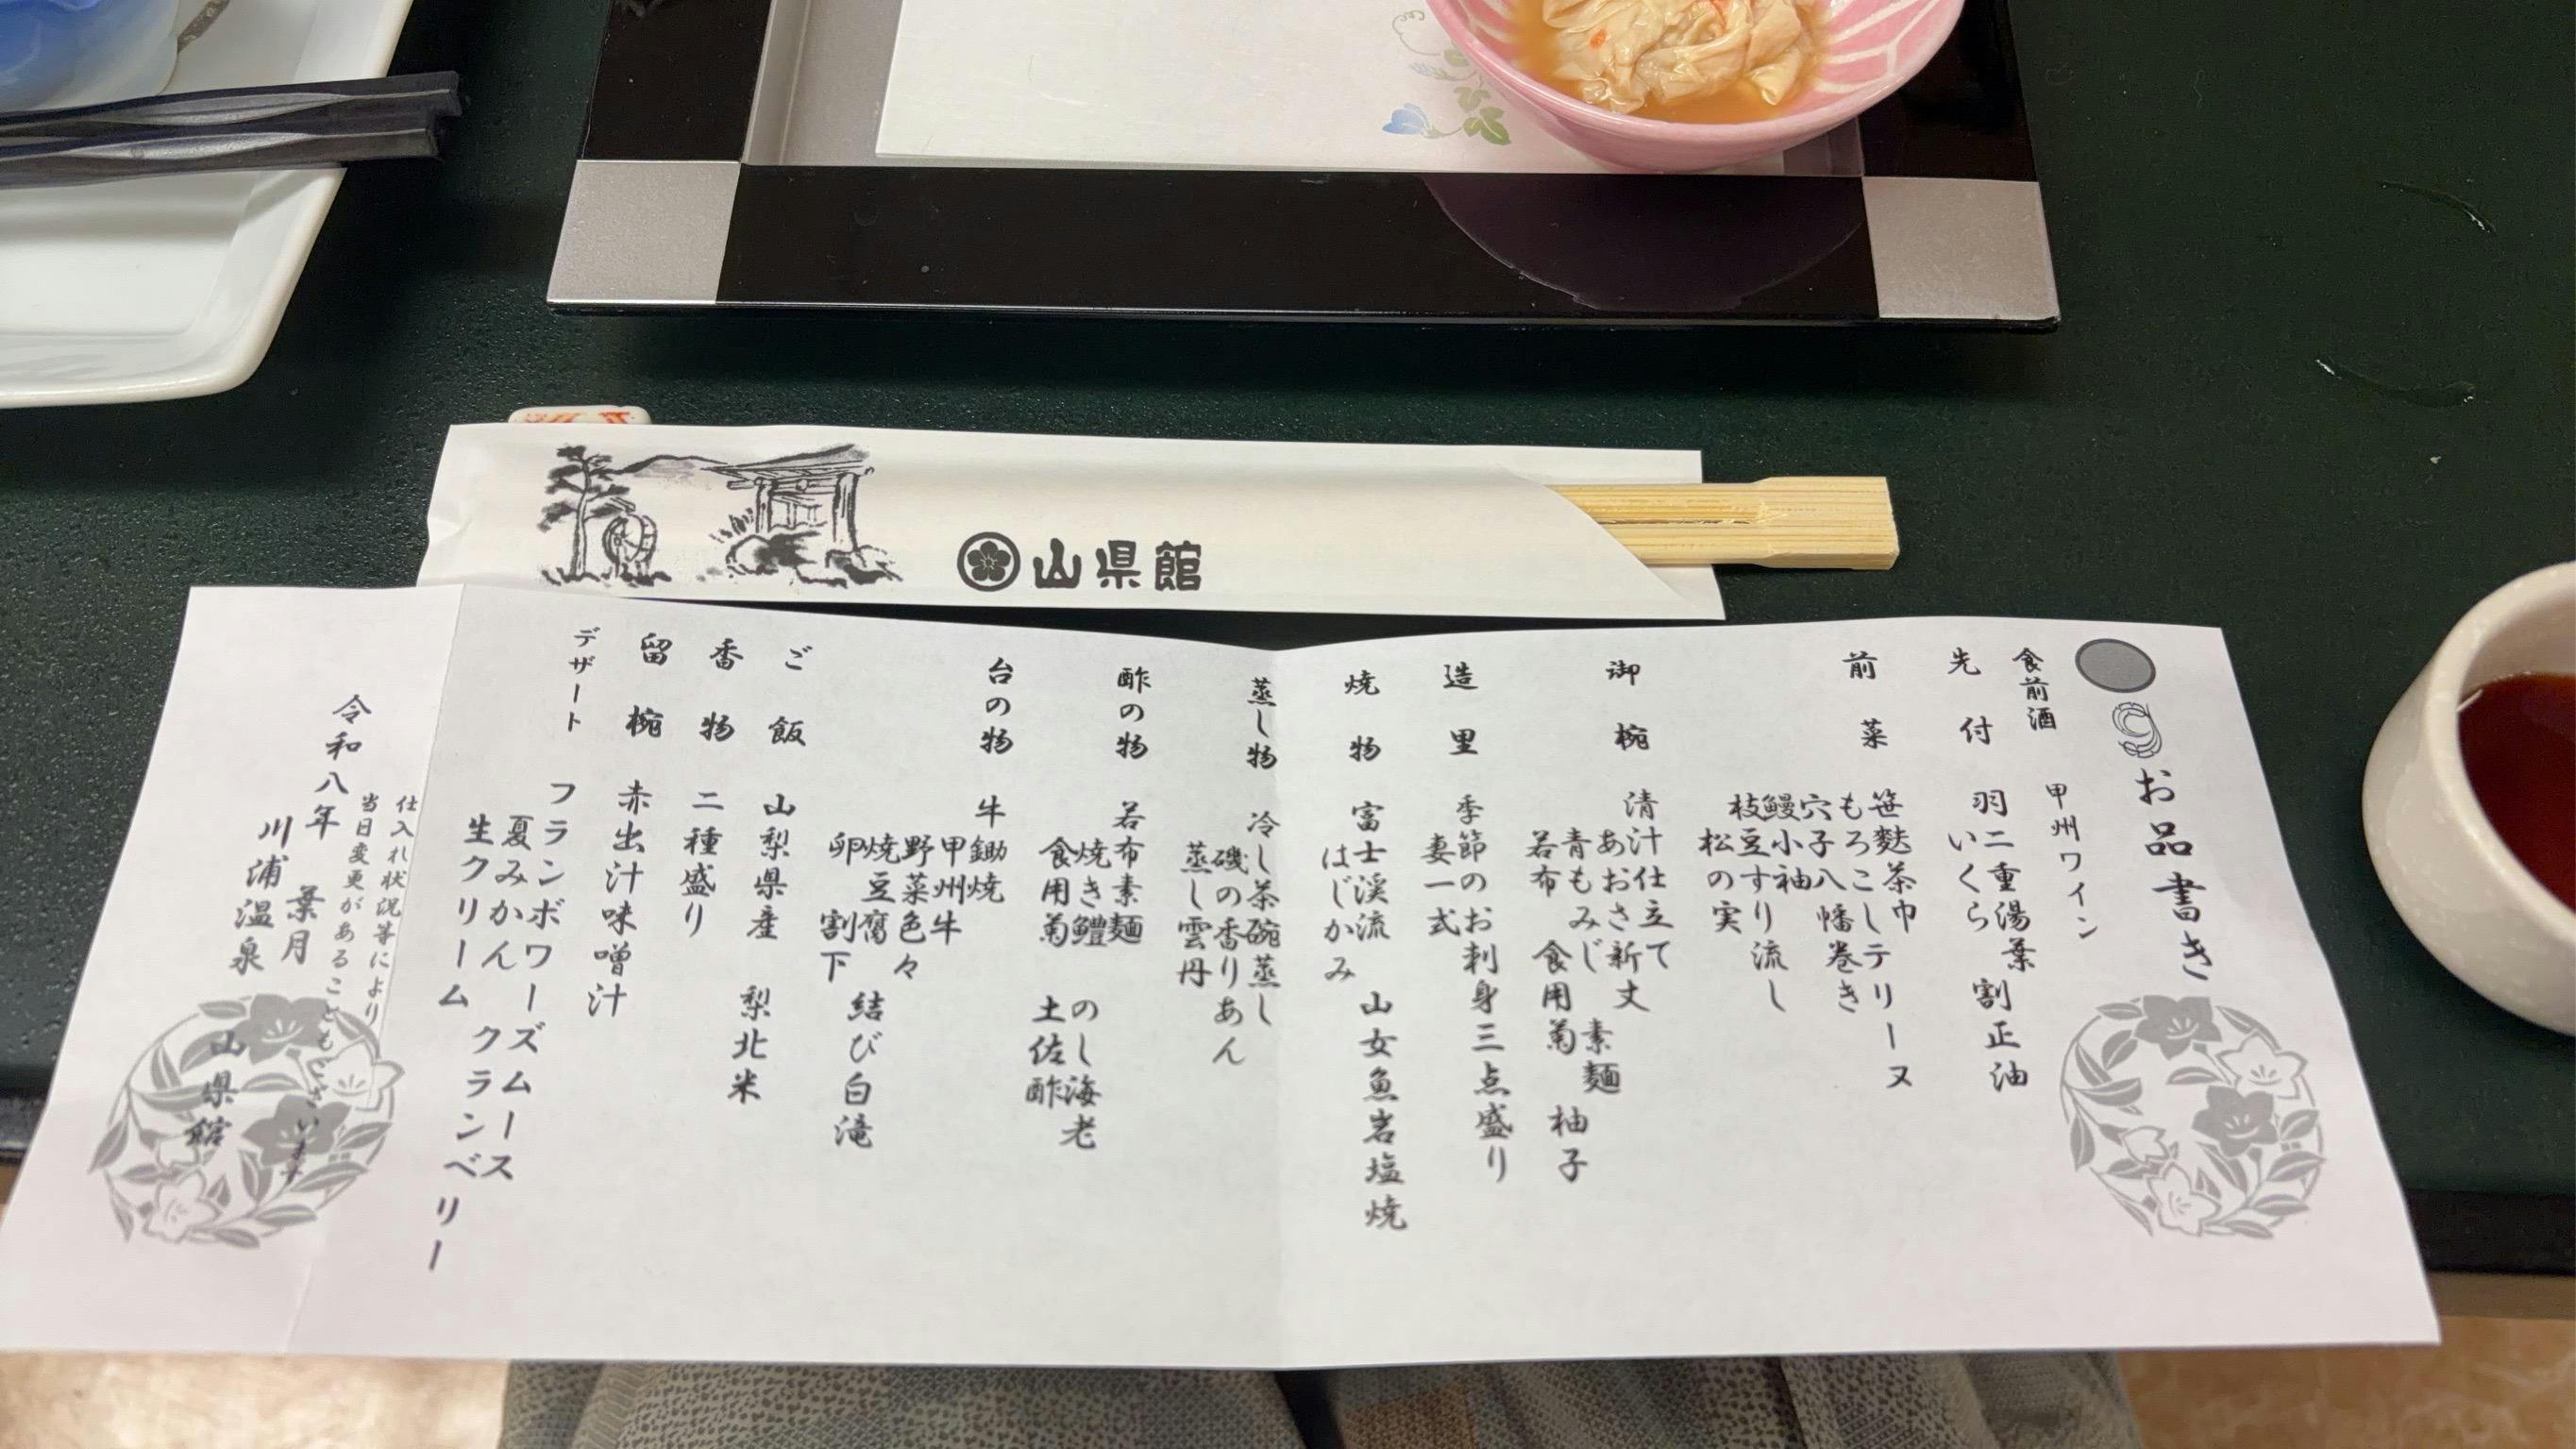 山県館
お品書き
食前酒 甲州ワイン
先付 羽二重湯葉 割正油
いくら
前菜 笹麩茶巾
もろこしテリーヌ
穴子八幡巻き
鰻小袖
枝豆すり流し
松の実
御椀 清汁仕立て
あおさ新丈 素麺
青もみじ 食用菊 柚子
若布
造里 季節のお刺身三点盛り
妻一式
焼物 富士渓流 山女魚岩塩焼
はじかみ
蒸し物 冷し茶碗蒸し
磯の香りあん
蒸し雲丹
酢の物 若布素麺
焼き鱧 のし海老
食用菊 土佐酢
台の物 牛鋤焼
甲州牛
野菜色々
焼豆腐 結び白滝
卵 割下
ご飯 山梨県産 梨北米
香物 二種盛り
留椀 赤出汁味噌汁
デザート フランボワーズムース
夏みかん クランベリー
生クリーム
仕入れ状況等により
当日変更があることもございます
令和八年 葉月
川浦温泉 山県館